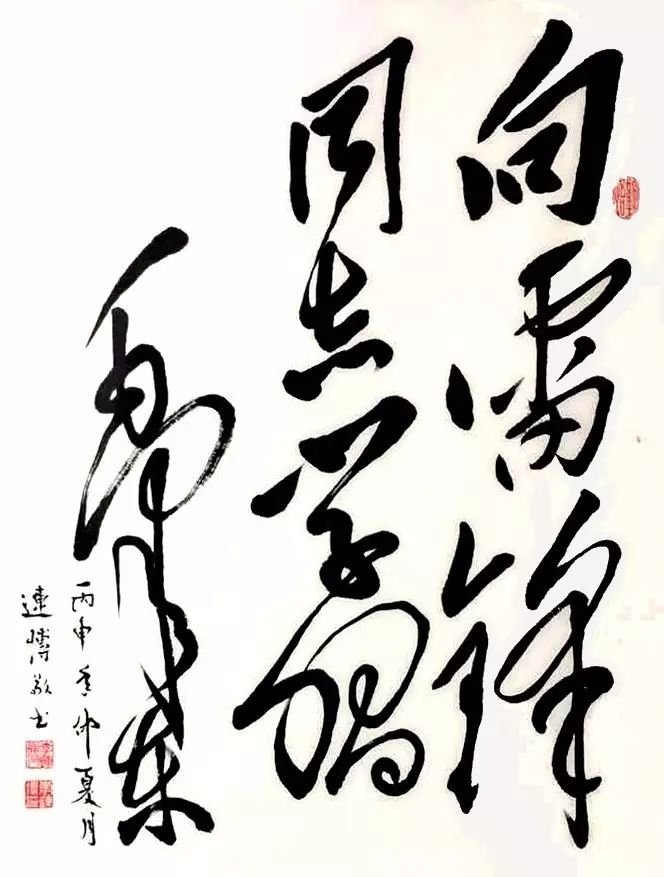 向雷锋
同志学习
毛泽东
丙申年仲夏月
连博敬书